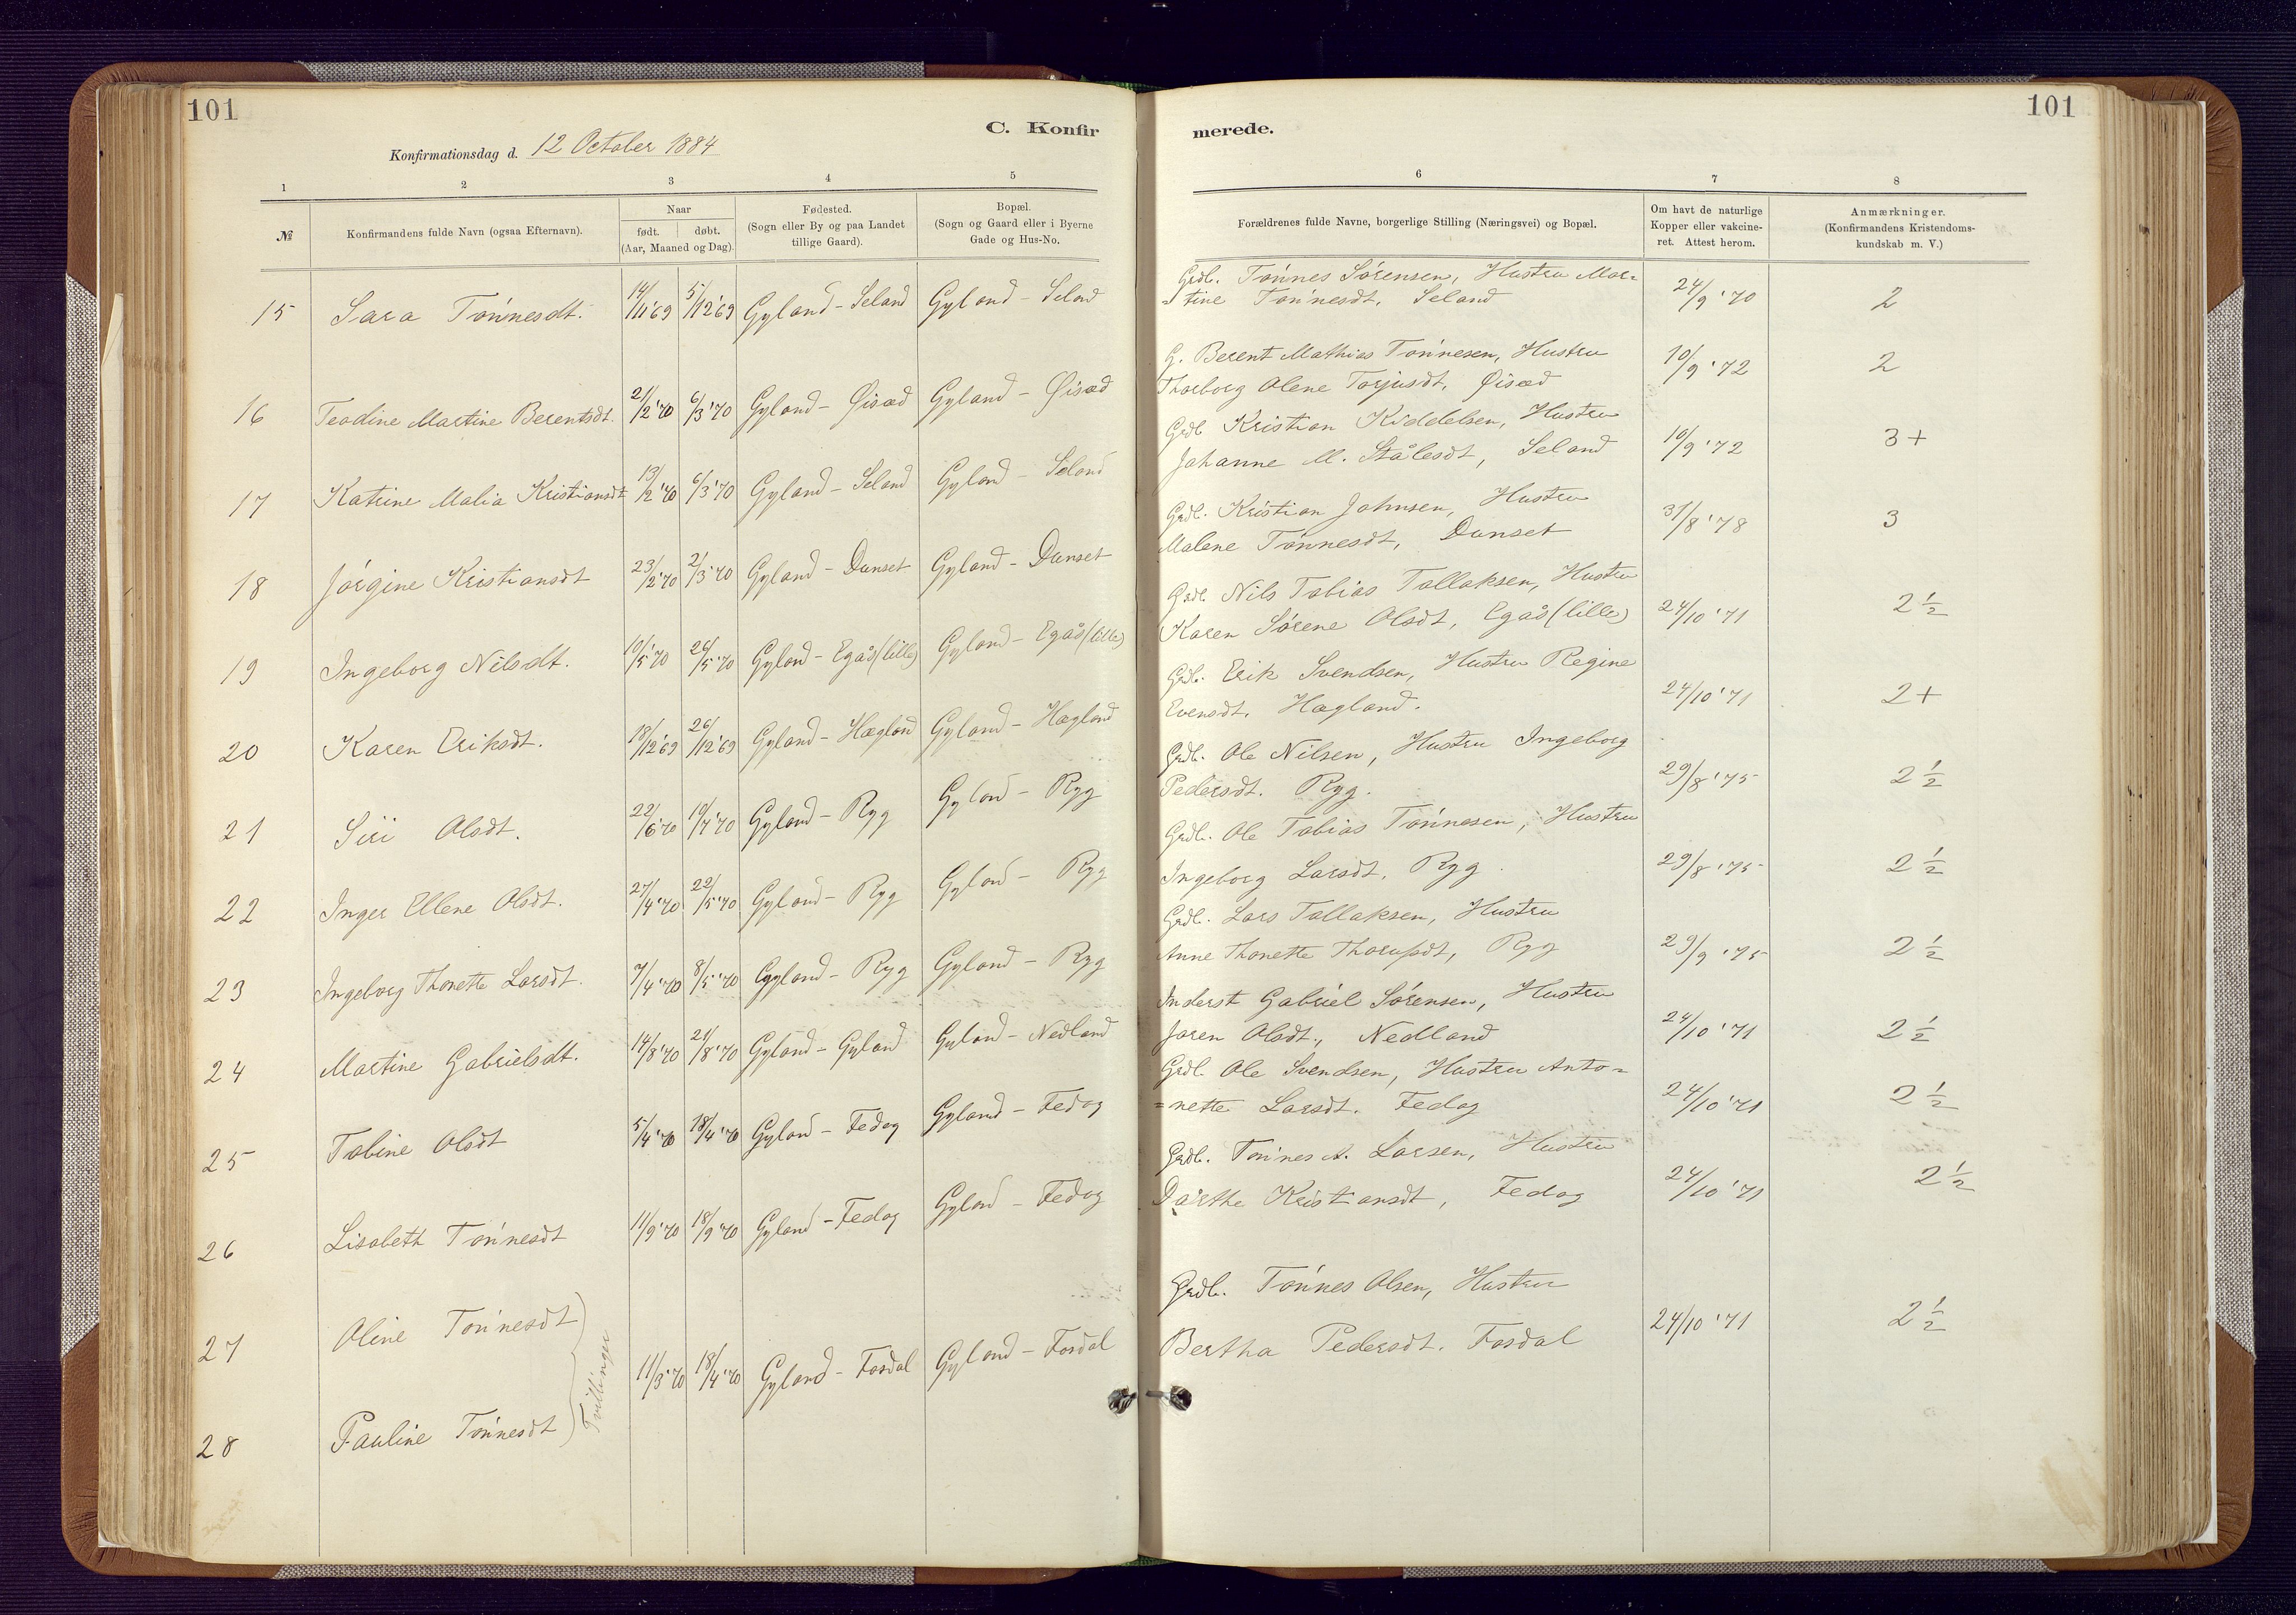 101
101
C. Konfir
merede.
Konfirmationsdag d. 12 October 1884
1 2 3 4 5 6 7 8
№
Konfirmandens fulde Navn (ogsaa Efternavn).
Naar
født. døbt.
(Aar, Maaned og Dag).
Fødested.
(Sogn eller By og paa Landet
tillige Gaard).
Bopæl.
(Sogn og Gaard eller i Byerne
Gade og Hus-No.
Forældrenes fulde Navne, borgerlige Stilling (Næringsvei) og Bopæl.
Om havt de naturlige
Kopper eller vakcine-
ret. Attest herom.
Anmærkninger.
(Konfirmandens Kristendoms-
kundskab m. V.)
15 Sara Tønnesdt. 14/11'69 5/12'69 Gyland - Seland Gyland - Seland
Grdb. Tønnes Sørensen, Hustru Mar=
=tine Tønnesdt. Seland 24/9 '70 2
16 Teodine Martine Berentsdt. 21/2'70 6/3'70 Gyland - Øisæd Gyland - Øisæd
G. Berent Mathias Tønnesen, Hustru
Thorborg Olene Torjusdt. Øisæd 10/9 '72 2
17 Katrine Malia Kristiansdt 13/2'70 6/3'70 Gyland - Seland Gyland - Seland
Grdb Kristian Kiddelsen, Hustru
Johanne M. Stålesdt, Seland 10/9 '72 3+
18 Jørgine Kristiansdt 23/2'70 2/3'70 Gyland - Dunset Gyland - Dunset
Grdb. Kristian Johnsen, Hustru
Malene Tønnesdt, Dunset 31/8 '78 3
19 Ingeborg Nilsdt. 10/5'70 26/5'70 Gyland - Egås (lille) Gyland - Egås (lille)
Grdb. Nils Tobias Tallaksen, Hustru
Karen Sørene Olsdt, Egås (lille) 24/10 '71 2 1/2
20 Karen Eriksdt. 18/12'69 26/12'69 Gyland - Hægland Gyland - Hægland
Grdb. Erik Svendsen, Hustru Regine
Evensdt. Hægland. 24/10 '71 2+
21 Siri Olsdt. 22/6'70 10/7'70 Gyland - Ryg Gyland - Ryg
Grdb. Ole Nilsen, Hustru Ingeborg
Pedersdt. Ryg. 29/8 '75 2 1/2
22 Inger Ellene Olsdt. 27/4'70 22/5'70 Gyland - Ryg Gyland - Ryg
Grdb. Ole Tobias Tønnesen, Hustru
Ingeborg Larsdt, Ryg 29/8 '75 2 1/2
23 Ingeborg Thonette Larsdt. 7/4'70 8/5'70 Gyland - Ryg Gyland - Ryg
Grdb. Lars Tallaksen, Hustru
Anne Thonette Ryg 29/9 '75 2 1/2
24 Martine Gabrielsdt. 14/8'70 21/8'70 Gyland - Gyland Gyland - Nedland
Inderst Gabriel Sørensen, Hustru
Joren Olsdt., Nedland 24/10 '71 2 1/2
25 Tobine Olsdt 5/4'70 18/4'70 Gyland - Fedog Gyland - Fedog
Grdb. Ole Svendsen, Hustru Anto=
=nette Larsdt. Fedog 24/10 '71 2 1/2
26 Lisabeth Tønnesdt 11/9'70 18/9'70 Gyland - Fedog Gyland - Fedog
Grdb. Tønnes A. Larsen, Hustru
Dorthe Kristiansdt, Fedog 24/10 '71 2 1/2
27 Oline Tønnesdt
Tvillinger
11/3'70 18/4'70 Gyland - Fosdal Gyland - Fosdal
Grdb. Tønnes Olsen, Hustru
Bertha Pedersdt. Fosdal 24/10 '71 2 1/2
28 Pauline Tønnesdt